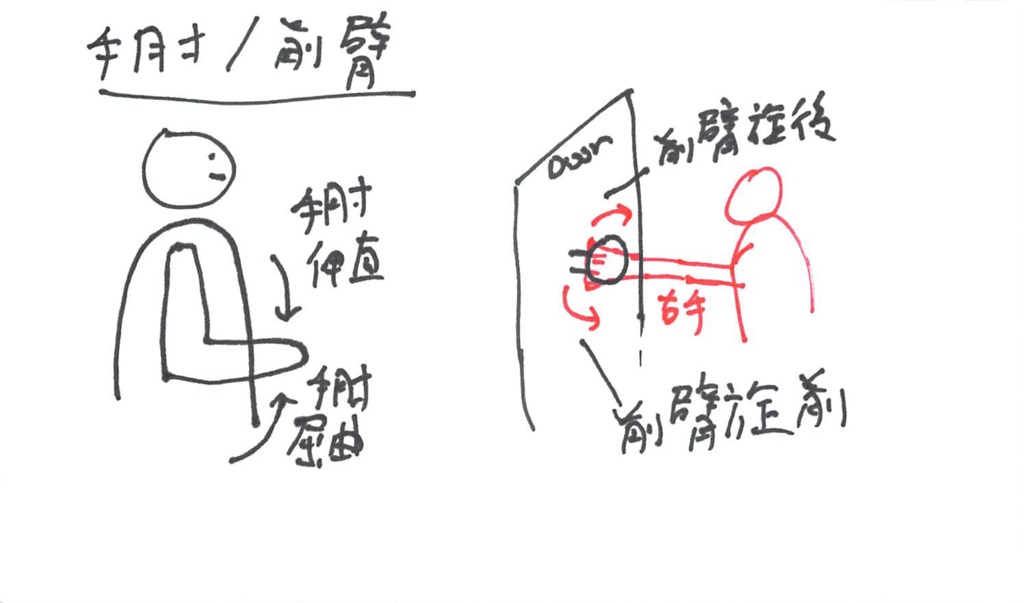 手肘/前臂
手肘
伸直
手肘
屈曲
Door
前臂旋後
右手
前臂旋前